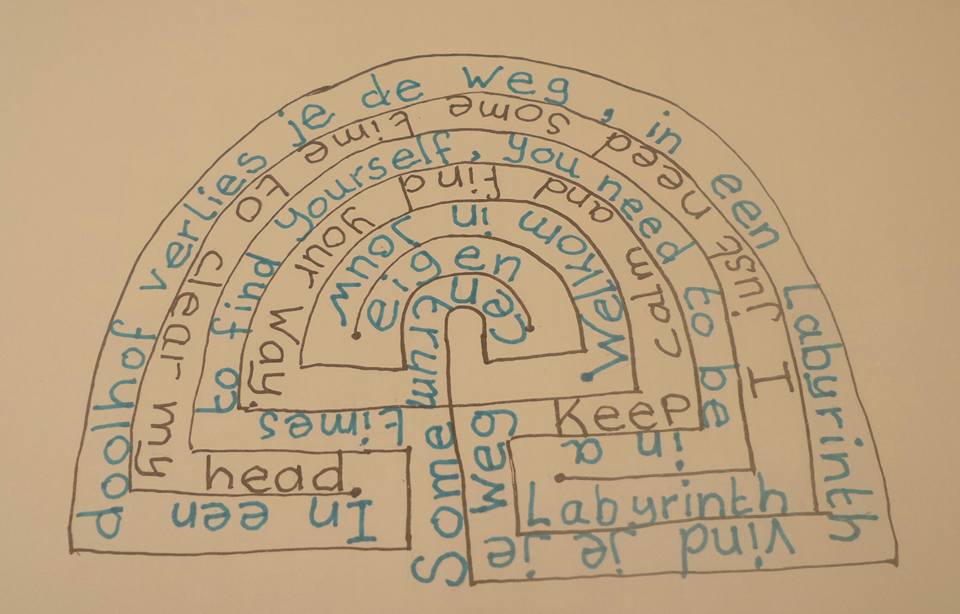 In een doolhof verlies je de weg, in een Labyrinth vind je je weg
I just need some time to clear my head
Some times to find yourself, you need to be in a Labyrinth
Keep calm and find your way.
Welkom in jouw eigen centrum